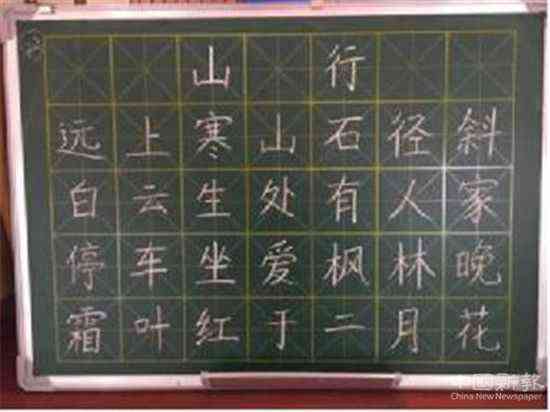 山行
远上寒山石径斜
白云生处有人家
停车坐爱枫林晚
霜叶红于二月花
中国新报
China New Newspaper